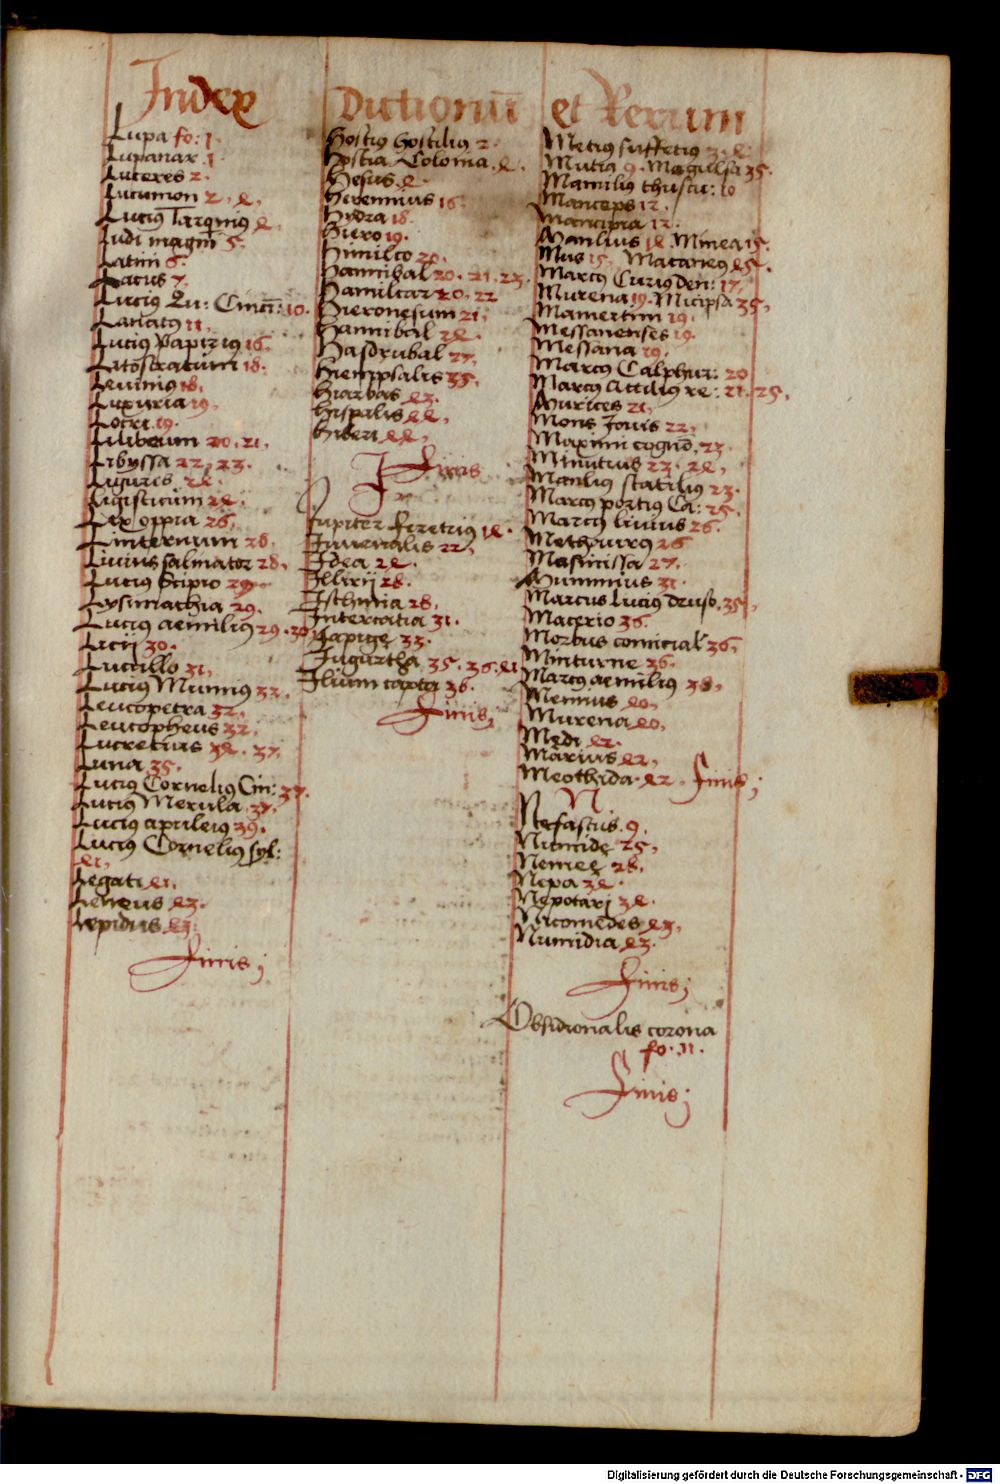 Index Dictionuū et Rerum
Lupa fo: 1.
Lupanar 1.
Luceres 2.
Lucumon 2, 4,
Luciꝰ Tarqniꝰ 4,
Ludi magni 5.
Latini 6.
Lacus 7,
Luciꝰ Qu: Cinci: 10.
Lanatꝰ 11,
Luciꝰ Papiriꝰ 16.
Litostratum 18.
Leuiniꝰ 18,
Luxuria 19,
Locri 19.
Lilibeum 20, 21,
Libyssa 22, 23.
Ligures 24.
Ligisticum 24,
Lex oppia 26,
Linternum 28.
Liuius salinator 28,
Luciꝰ Scipio 29
Lysimachia 29.
Luciꝰ aemiliꝰ 29. 30
Licij 30.
Lucullo 31,
Luciꝰ Mumiꝰ 32,
Leucopetra 32,
Leucopheus 32,
Lucretius 34. 37,
Luna 35,
Luciꝰ Corneliꝰ Cin: 37.
Luciꝰ Merula 37,
Luciꝰ apuleiꝰ 39.
Luciꝰ Corneliꝰ syl:
41,
Legati 41,
Leneus 43.
Lepidus 43.
Finis;
Hostiꝰ hostiliꝰ 2.
Hostia Colonia. 4.
Hesus 4.
Herennius 16
Hydra 18.
Hiero 19.
Himilco 20.
Hannibal 20. 21. 23.
Hamilcar 20. 22
Hieronesum 21,
Hannibal 24.
Hasdrubal 27.
Hiempsalis 35,
Hiarbas 43.
Hispalis 44,
Hiberi 44,
Finis
I
Iupiter feretriꝰ 14.
Iuuenalis 22,
Idea 24.
Illirij 28.
Isthmia 28,
Intercatia 31.
Iapige 33.
Iugurtha 35. 36. 41
Ilium capta 38.
Finis,
Metiꝰ suffetiꝰ 3. 4:
Mutiꝰ 9. Magulsa 35.
Mamiliꝰ thuscu: 10
Manceps 12.
Mancipia 12.
Manlius 14. Minea 15.
Mus 15, Mataneꝰ 45.
Marcꝰ Curiꝰ den: 17,
Murena 19. Micipsa 35,
Mamertini 19.
Messanenses 19.
Messana 19.
Marcꝰ Calphur: 20
Marcꝰ Attiliꝰ re: 21. 25,
Murices 21,
Mons Iouis 22,
Maximi cognō. 23
Minutius 23. 24,
Manliꝰ statiliꝰ 23.
Marcꝰ portiꝰ Ca: 25,
Marcꝰ liuius 26.
Methaurꝰ 26
Masinissa 27.
Mummius 31
Marcus Luciꝰ druso. 35,
Macerio 36.
Morbus comicial' 36,
Minturne 36.
Marcꝰ aemiliꝰ 38,
Memius 40,
Murena 40,
Medi 42.
Marius 42,
Meothida. 42. Finis;
N
Nefastus. 9,
Numide 25,
Nemee 28,
Nepa 34.
Nepotari 34.
Nicomedes 43,
Numidia 43.
Finis;
Obsidionalis corona
fo. 11.
Finis;
Digitalisierung gefördert durch die Deutsche Forschungsgemeinschaft - DFG